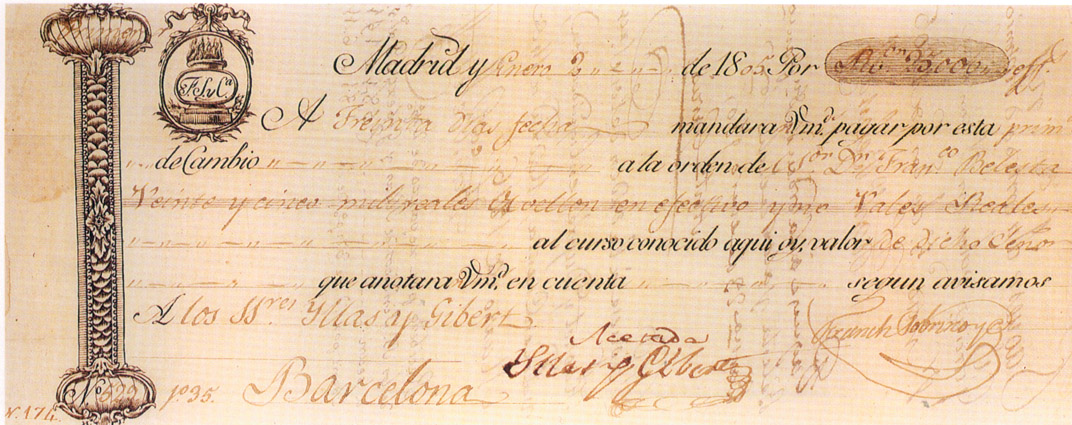 Madrid y Enero 2 de 1805. Por Rs. von 25000 eff.
F. S. y Ca
A Treinta dias fecha mandara Vm. pagar por esta prim.
de Cambio a la orden de el Sor. Dn. Franco Belesta
Veinte y cinco mil reales de vellon en efectivo y no Vales Reales
al curso conocido aqui oy, valor de dicho Señor
que anotara Vm. en cuenta segun avisamos
A los SSres Yllas y Gibert
Acetada
Yllas y Gibert
Sobrino y Ca
No 522
1035.
Barcelona
N. 174